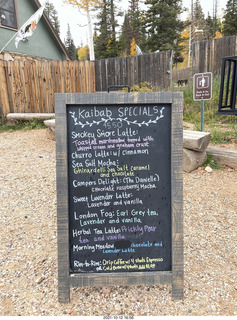 Kaibab SPECIALS
Smokey Shore Latte:
Toasted marshmallow
whipped cream and graham crust
Churro Latte: w/ Cinnamon
Sea Salt Mocha:
Ghirardelli Sea Salt Caramel
and chocolate
Campers Delight: (The Danielle)
Chocolate raspberry Mocha
Sweet Lavender Latte:
Lavender and Vanilla
London Fog: Earl Grey tea,
Lavender and vanilla
Herbal Tea Latte: Prickly Pear
tea and vanilla
Morning Meadow chocolate and
Lavender Latte
Rim-to-Rim: Drip Coffee w/ 4 shots Espresso